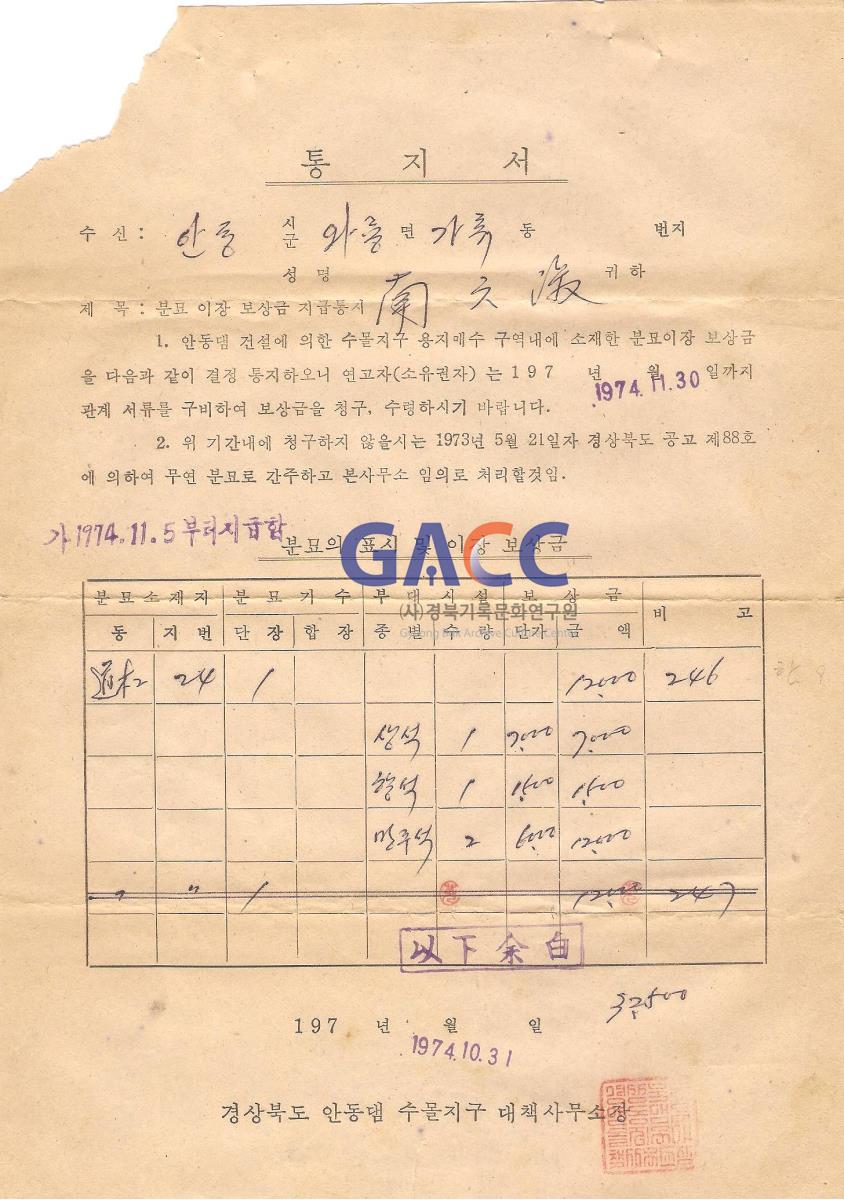 통 지 서
수 신 : 안동 시 군 와룡 면 가류 동 번지
성 명 南 귀 하
제 목 : 분묘 이장 보상금 지급통지
1. 안동댐 건설에 의한 수몰지구 용지매수 구역내에 소재한 분묘이장 보상금
을 다음과 같이 결정 통지하오니 연고자(소유권자) 는 197 년 월 일까지
1974.11.30
관계 서류를 구비하여 보상금을 청구, 수령하시기 바랍니다.
2. 위 기간내에 청구하지 않을시는 1973년 5월 21일자 경상북도 공고 제88호
에 의하여 무연 분묘로 간주하고 본사무소 임의로 처리할것임.
가 1974.11.5 부터 지급함
분묘의 표시 및 이장 보상금
GACC
(사)경북기록문화연구원
Gyeong Buk Archive Culture Center
분묘소재지 분묘기수 부대시설 보상금 비고
동 지번 단장 합장 종별 수량 단가 금액
24 1 12,000 246
상석 1 7,000 7,000
향석 1
망주석 2 6,000 12,000
〃 〃 1 12,000 247
以下余白
197 년 월 일
1974.10.31
경상북도 안동댐 수몰지구 대책사무소장